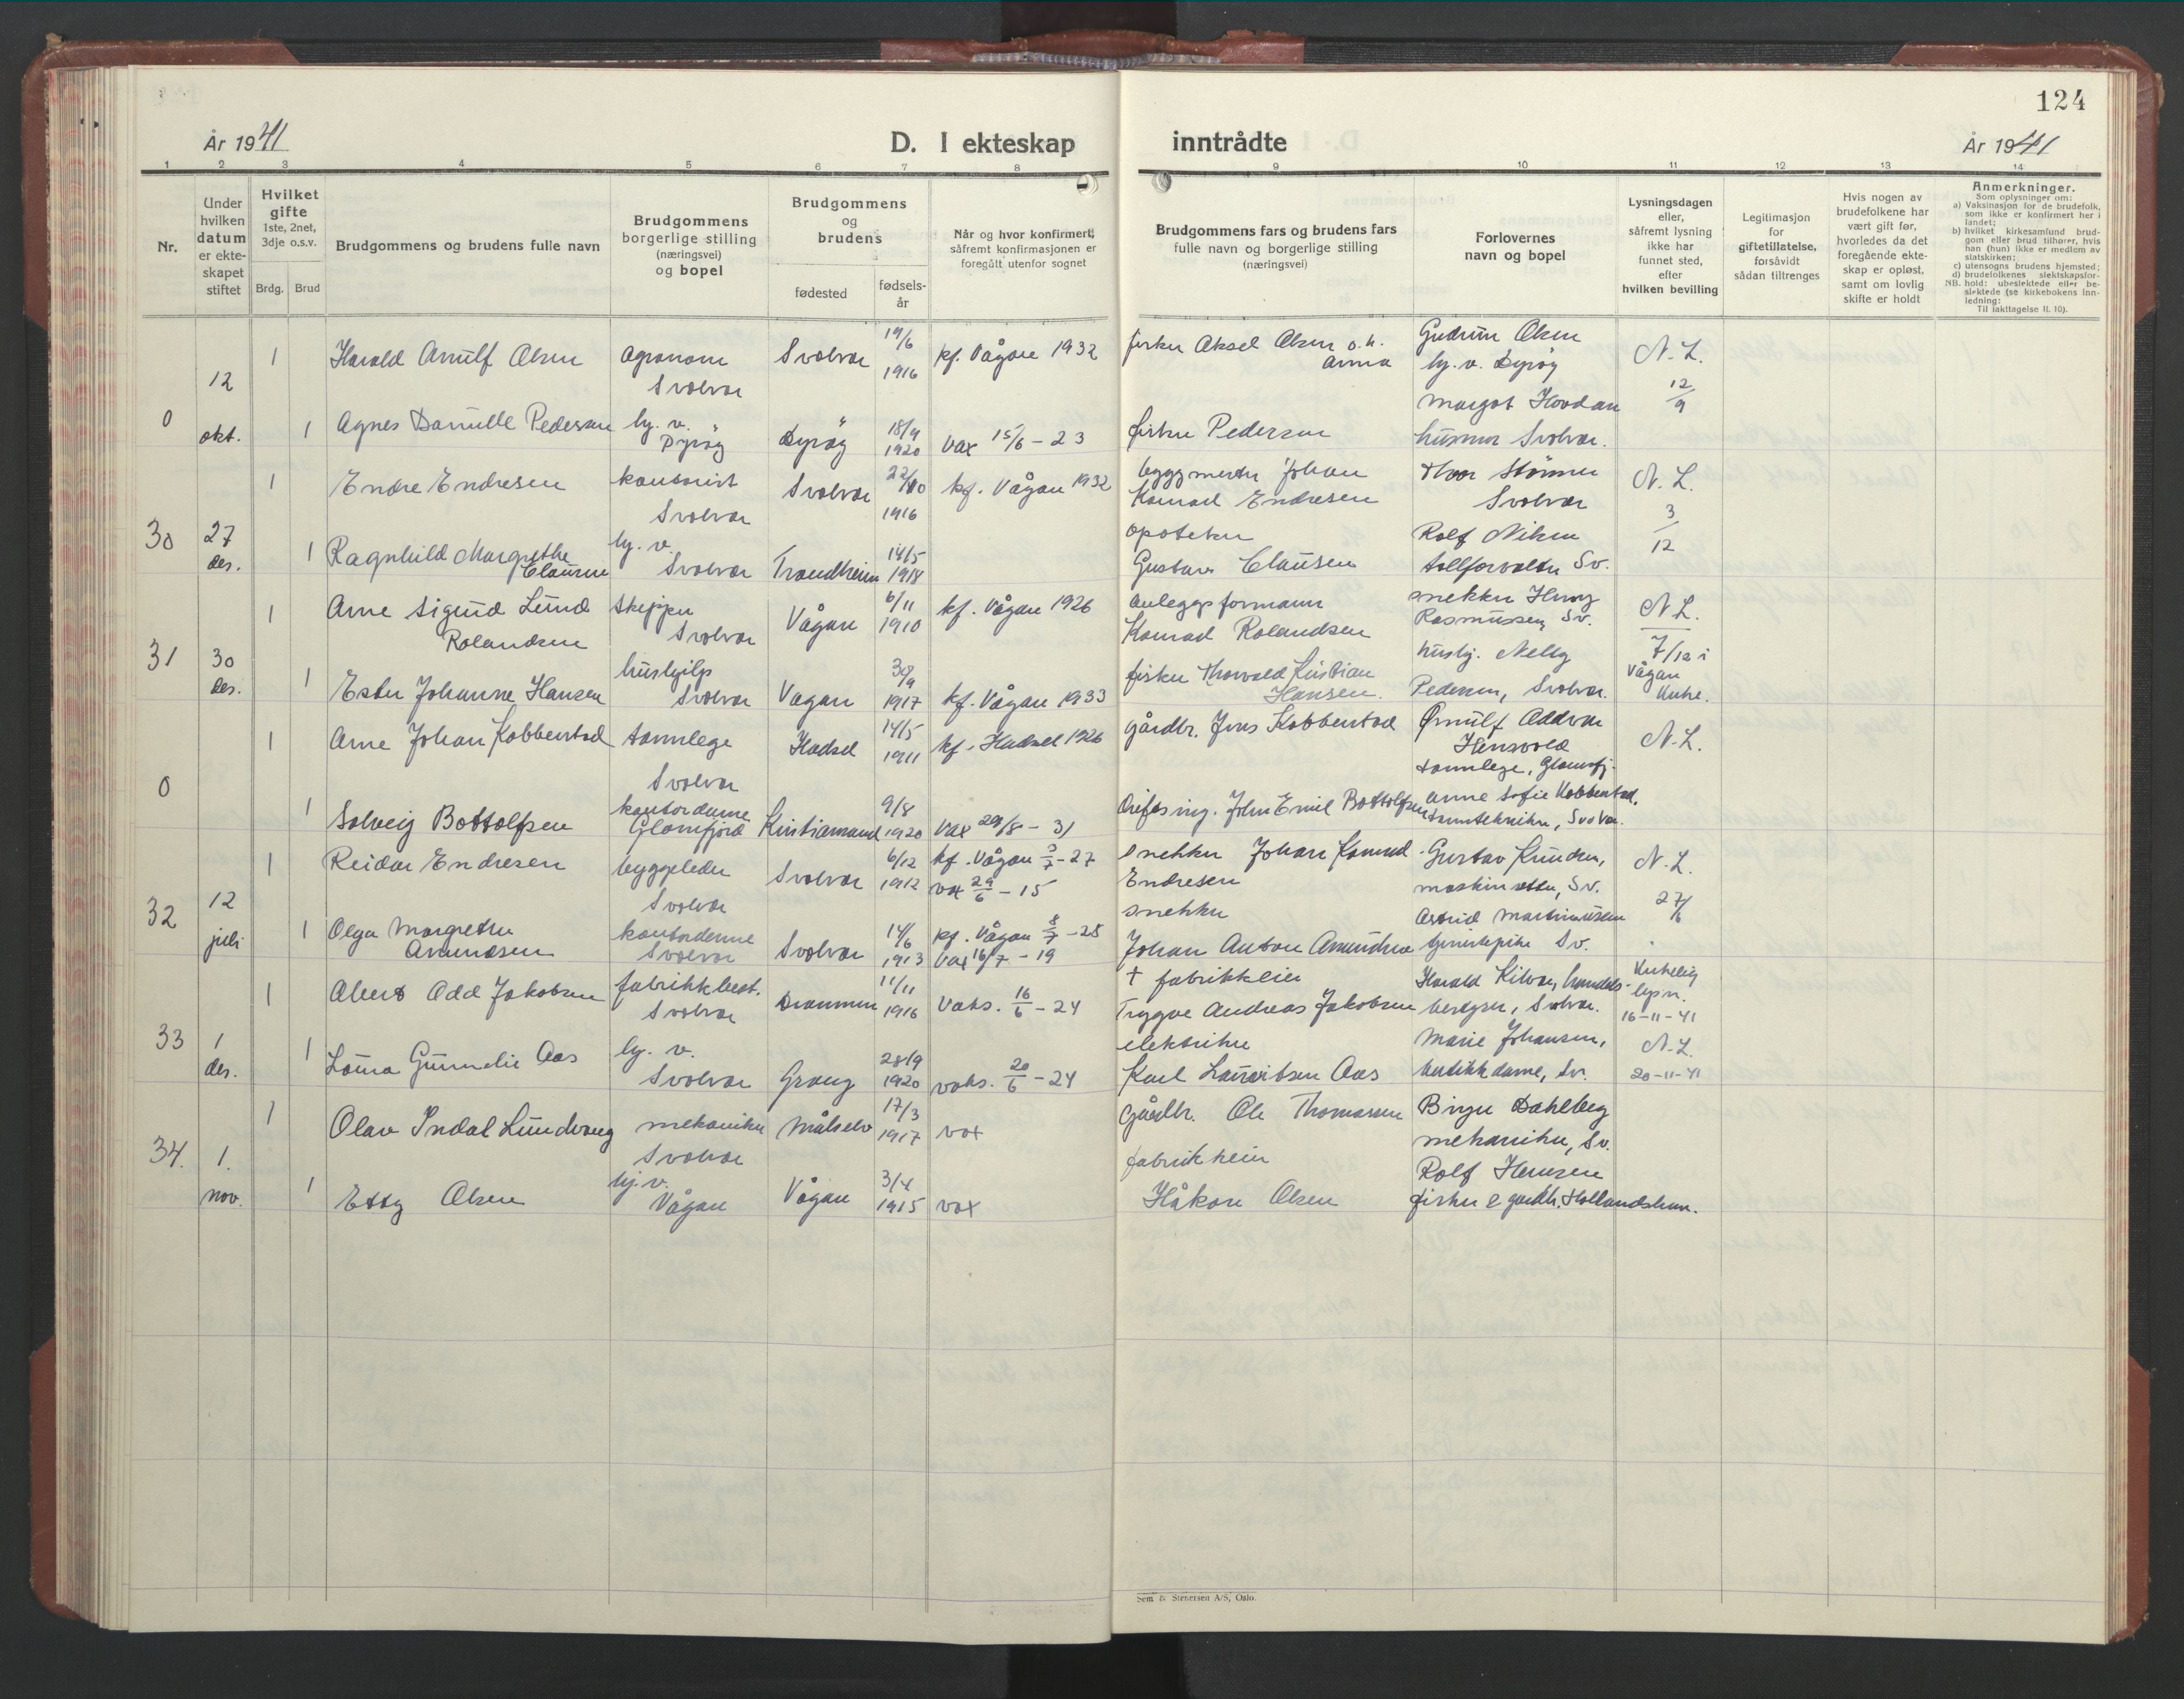 124
År 1941
D. I ekteskap inntrådte
År 1941
1 2 3 4 5 6 7 8 9 10 11 12 13 14
Nr.
Under hvilken datum er ekteskapet stiftet
Hvilket gifte 1ste, 2net, 3dje o.s.v.
Brdg. Brud
Brudgommens og brudens fulle navn
Brudgommens borgerlige stilling (næringsvei) og bopel
Brudgommens og brudens
fødested
fødsels-år
Når og hvor konfirmert, såfremt konfirmasjonen er foregått utenfor sognet
Brudgommens fars og brudens fars fulle navn og borgerlige stilling (næringsvei)
Forlovernes navn og bopel
Lysningsdagen eller, såfremt lysning ikke har funnet sted, efter hvilken bevilling
Legitimasjon for giftetillatelse, forsåvidt sådan tiltrenges
Hvis nogen av brudefolkene har vært gift før, hvorledes da det foregående ekteskap er opløst, samt om lovlig skifte er holdt
Anmerkninger.
Som oplysninger om:
a) Vaksinasjon for de brudefolk, som ikke er konfirmert her i landet;
b) hvilket kirkesamfund brudgom eller brud tilhører, hvis han (hun) ikke er medlem av statskirken;
c) utensogns brudens hjemsted;
d) brudefolkenes slektskapsforhold: ubeslektede eller beslektede (se kirkebokens innledning:
NB. Til iakttagelse II. 10).
0 12 okt.
1 Harald Arnulf Olsen agronom Svolvær Svolvær 19/6 1916 kf. Vågan 1932 fisker Aksel Olsen o.h. Anna Gudrun Olsen hj. v. Dyrøy N.L. 12/9
1 Agnes Danielle Pedersen hj. v. Dyrøy Dyrøy 18/9 1920 vax 15/6 - 23 fisker Pedersen Margot Hovdan husmor Svolvær.
30 27 des.
1 Endre Endresen kontorist Svolvær Svolvær 22/10 1916 kf. Vågan 1932 byggmester Johan Konrad Endresen Thor Størmer Svolvær N.L. 3/12
1 Ragnhild Margrethe Clausen hj. v. Svolvær Trondheim 14/5 1918 apoteker Gustav Clausen Rolf Nilsen tollforvalter Sv.
31 30 des.
1 Arne Sigurd Lund Rolandsen skipper Svolvær Vågan 6/11 1910 kf. Vågan 1926 anleggsformann Konrad Rolandsen snekker Rasmussen, Sv. N.L. 7/12 i Vågan kirke.
1 Ester Johanne Hansen hushjelp Svolvær Vågan 1917 kf. Vågan 1933 fisker Thorvald Kristian Hansen. hushj. Nelly Pedersen, Svolvær.
0
1 Arne Johan Kobbenstad tannlege Svolvær Hadsel 14/5 1911 kf. Hadsel 1926 gårdbr. Jens Kobbenstad Ørnulf Oddvar tannlege, Glomfj. N.L.
1 Solveig Bottolfsen kontordame Glomfjord Kristiansund 9/8 1920 vax 29/8 - 31 driftsing. John Emil Bottolfsen Anne Sofie Kobbenstad, tanntekniker, Svolvær.
32 12 juli
1 Reidar Endresen byggeleder Svolvær Svolvær 6/12 1912 kf. Vågan 3/7 - 27 vax 29/6 - 15 snekker Johan Konrad Endresen Gustav Knudsen, maskinsetter, Sv. N.L. 27/6
1 Olga Margrethe Amundsen kontordame Svolvær Svolvær 14/6 1913 kf. Vågan 8/7 - 28 vax 16/7 - 19 snekker Johan Anton Amundsen Astrid Martinussen tjenestepike Sv.
33 1 des.
1 Albert Odd Jakobsen fabrikkbest. Svolvær Drammen 11/11 1916 Vaks. 16/6 - 24 † fabrikkeier Trygve Andreas Jakobsen Harald Kilvær, handelsbestyrer, Svolvær. Kirkelig lysn. 16-11-41
1 Laura Gunnelie Aas hj. v. Svolvær Grong 28/9 1920 vaks. 20/6 - 24 elektriker Karl Lauritsen Aas Marie Johansen, butikkdame, Sv. N.L. 20-11-41
34. 1. nov.
1 Olav Indal Lundvang mekaniker Svolvær Målselv 17/3 1917 vax gårdbr. Ole Thomassen Birger Dahlberg mekaniker, Sv.
1 Etty Olsen hj. v. Vågan Vågan 3/4 1915 vax fabrikkeier Håkon Olsen Rolf Hansen fisker & gårdbr. Hollandshavn.
Sem & Stenersen A/S, Oslo.